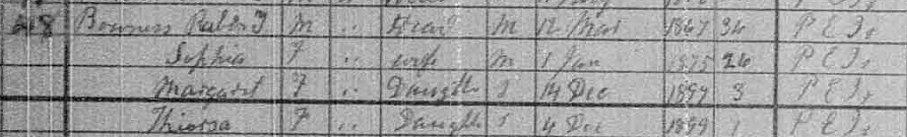 Bowness Robert M " Head M 12 Mar 1867 34 P E I
Sophia F " wife M 1 Jan 1875 26 P E I
Margaret F " Daughtr S 14 Dec 1897 3 P E I
F " Daughtr S 4 Dec 1899 1 P E I